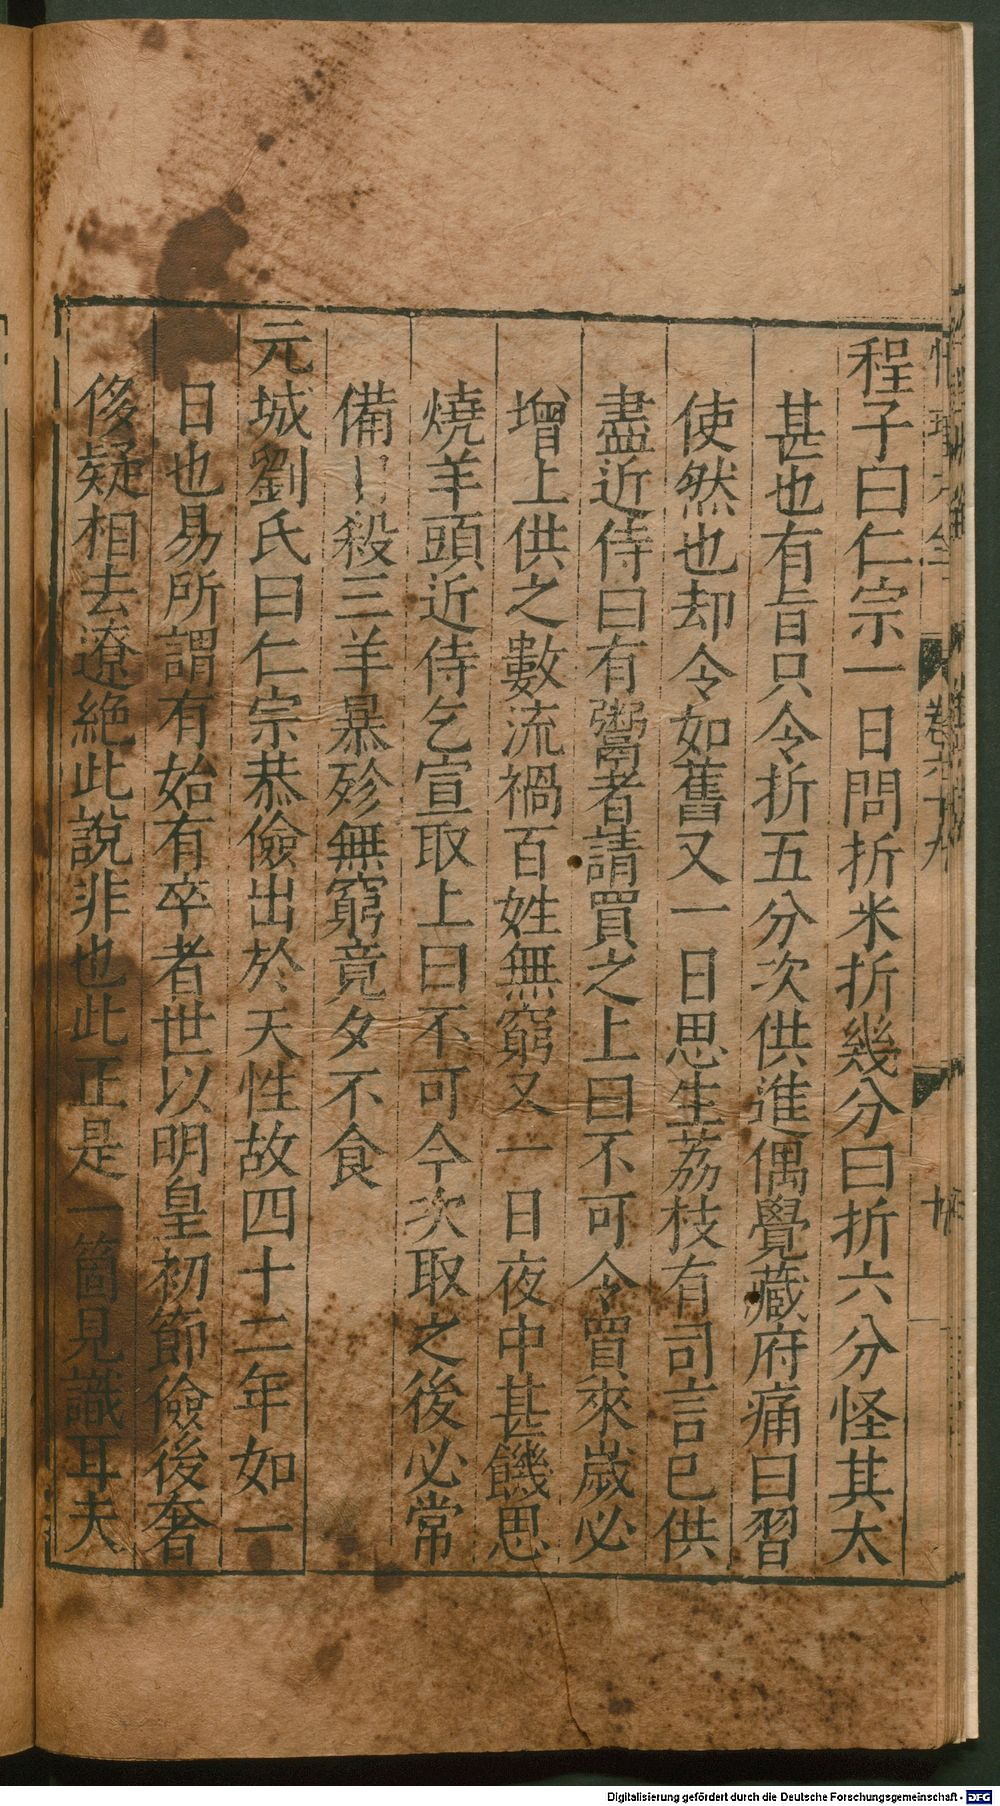 程子曰仁宗一日問折米折幾分曰折六分怪其太
甚也有旨只令折五分次供進偶覺藏府痛曰習
使然也却令如舊又一日思生荔枝有司言已供
盡近侍曰有鬻者請買之上曰不可令買來歲必
增上供之數流禍百姓無窮又一日夜中甚饑思
燒羊頭近侍乞宣取上曰不可今次取之後必常
備日殺三羊暴殄無窮竟夕不食
元城劉氏曰仁宗恭儉出於天性故四十二年如一
日也易所謂有始有卒者世以明皇初節儉後奢
侈疑相去遼絶此說非也此正是一箇見識耳夫
Digitalisierung gefördert durch die Deutsche Forschungsgemeinschaft - DFG